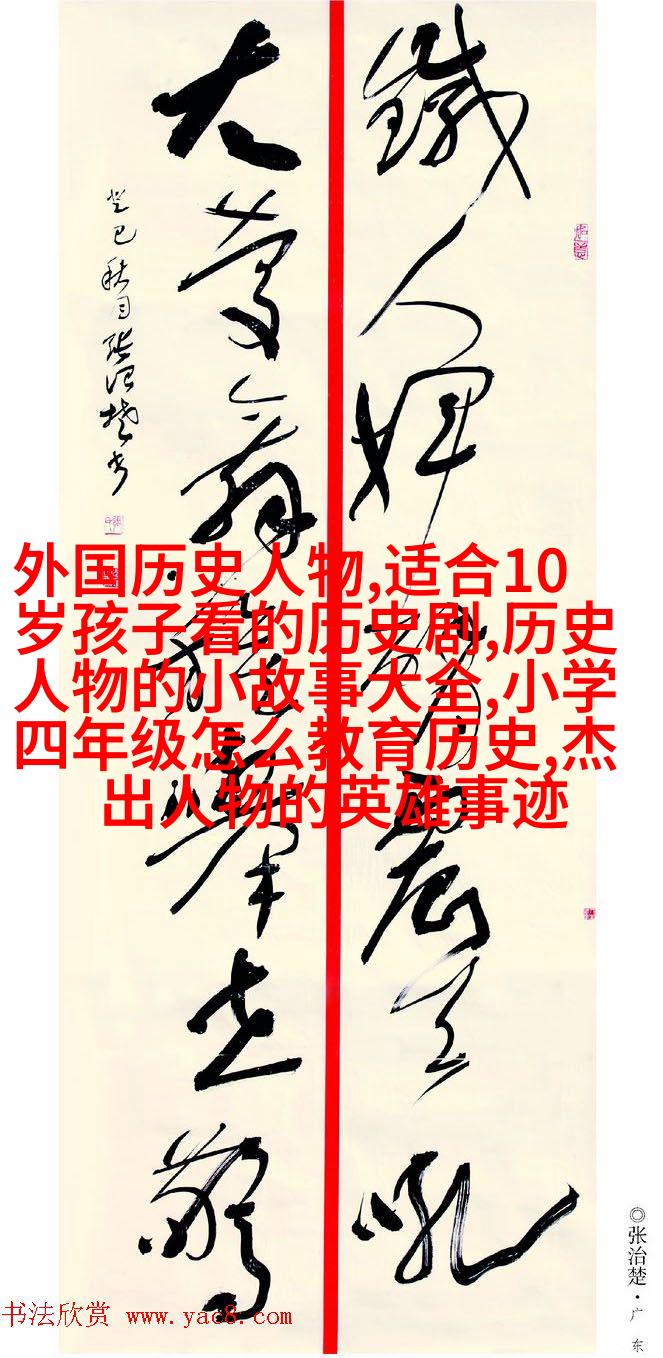 鐵人揮臂震天吼
大慶舞龍舉世驚
癸巳秋月張治楚書
外国历史人物,适合10
岁孩子看的历史剧,历史
人物的小故事大全,小学
四年级怎么教育历史,杰
出人物的英雄事迹
◎张治楚·广东
书法欣赏 www.yac8.com